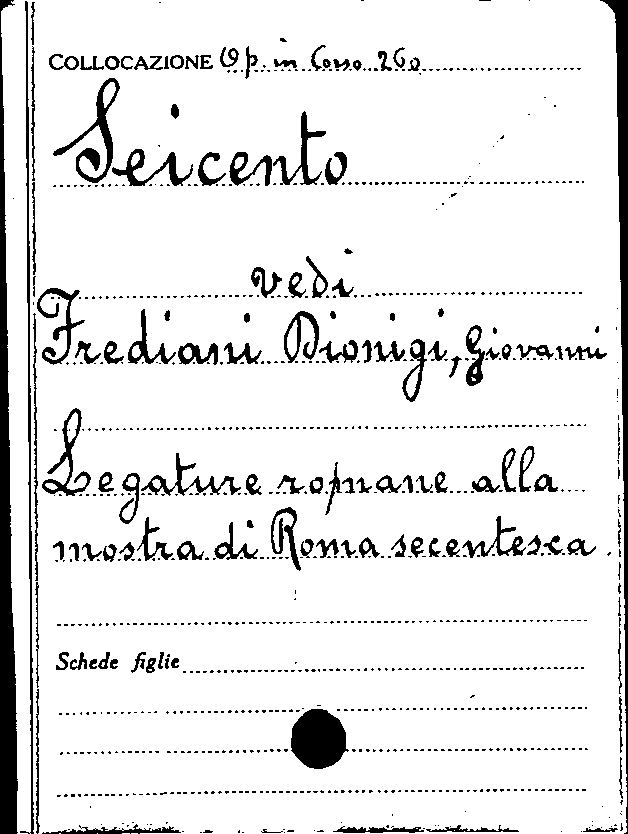 COLLOCAZIONE Op. in Corso 260
Seicento
vedi
Frediani Dionigi, Giovanni
Legature romane alla
mostra di Roma secentesca.
Schede figlie